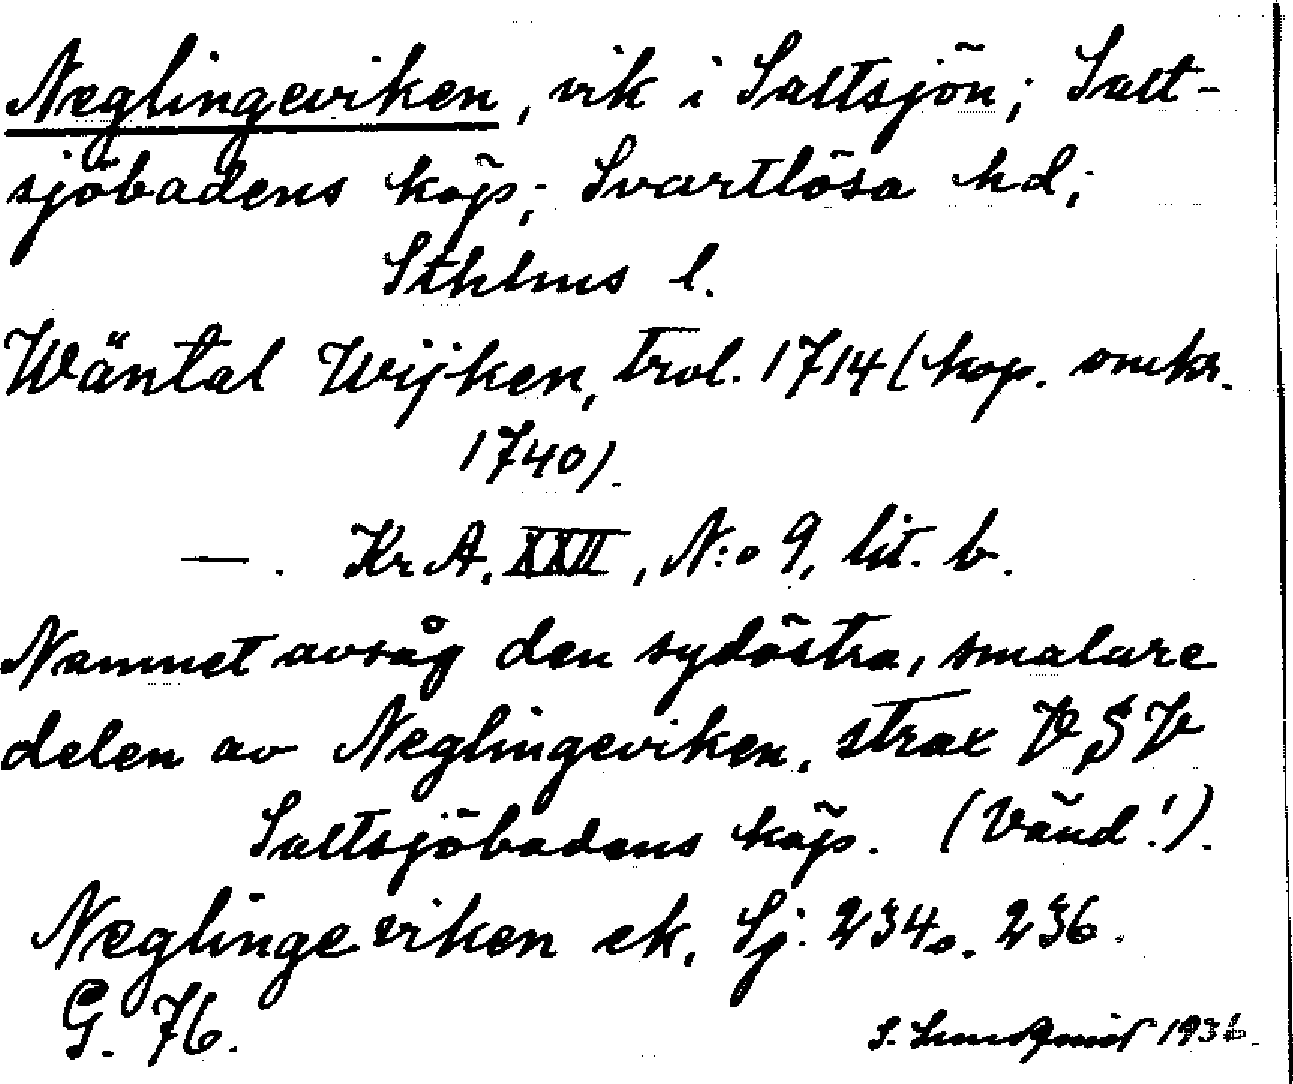 Neglingeviken, vik i Saltsjön; Salt-
sjöbadens köp; Svartlösa hd;
Sthlms l.
Wäntal Wijken, trol. 1714 (kop. omkr.
1740).
—. Kr A, XXII, N:o 9, lit. b.
Namnet avsåg den sydöstra, smalare
delen av Neglingeviken, strax V S V
Saltsjöbadens köp. (Vänd!).
Neglingeviken ek. Sj. 234 o. 236.
G. 76.
S. 1936.